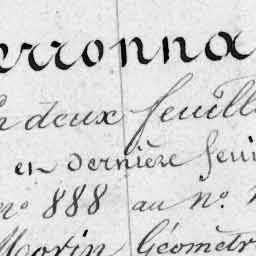 erronna
en deux feuill
en dernière feui
n° 888 au n°.
Morin Géomètr